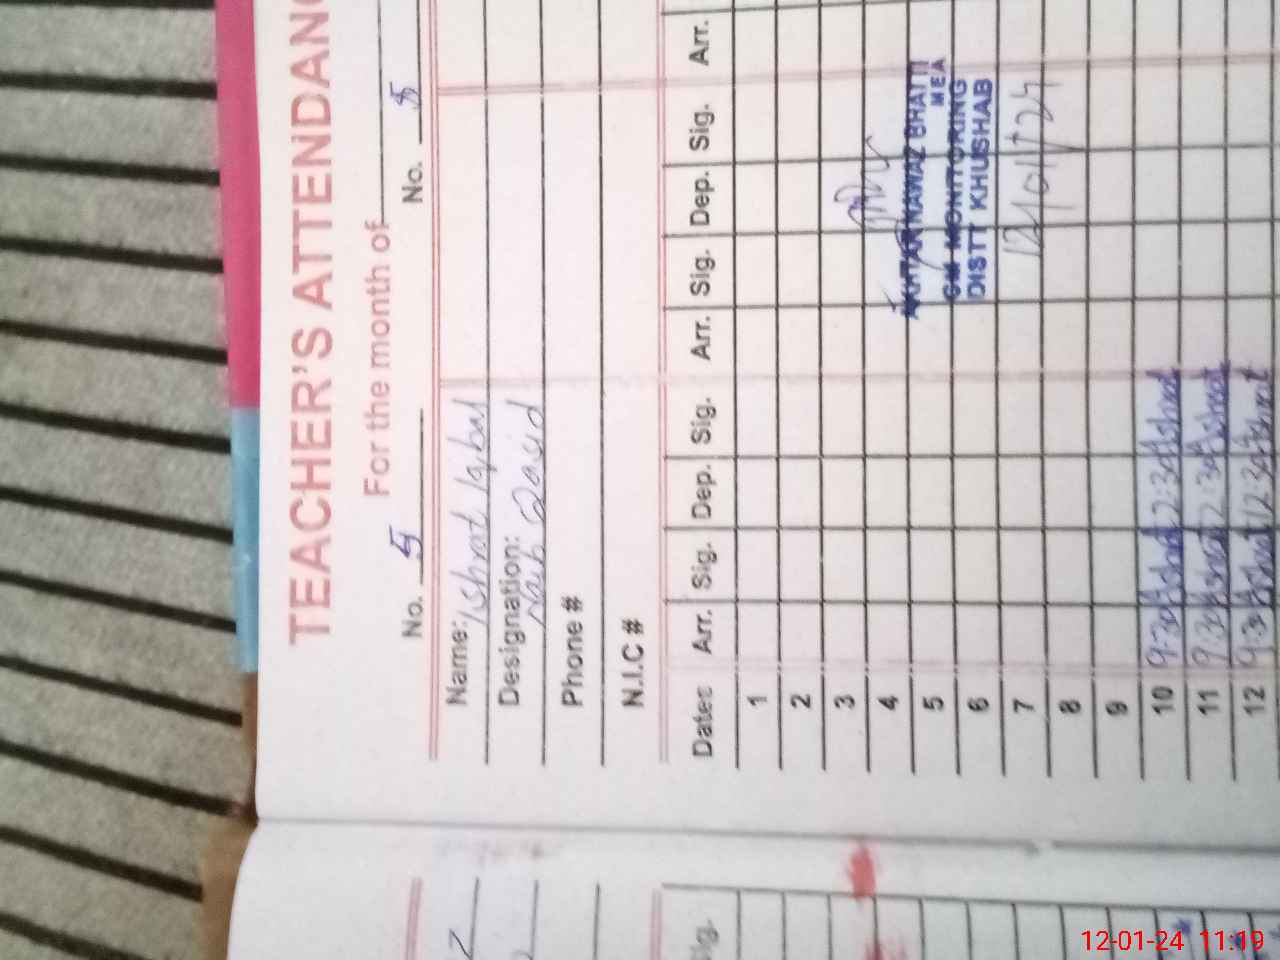 TEACHER'S ATTENDANC
For the month of
No. 5 No. 8
Name: Ishrat Iqbal
Designation: Naib Qasid
Phone #
N.I.C #
Dates Arr. Sig. Dep. Sig. Arr. Sig. Dep. Sig. Arr.
1
2
3
4
5
6
7
8
9
10 9:30 Ishrat 2:30 Ishrat
11 9:30 Ishrat 2:30 Ishrat
12 9:30 Ishrat 12:30 Ishrat
AKHTAR NAWAZ BHATTI
MEA
CM MONITORING
DISTT KHUSHAB
12/01/24
ig.
12-01-24 11:19